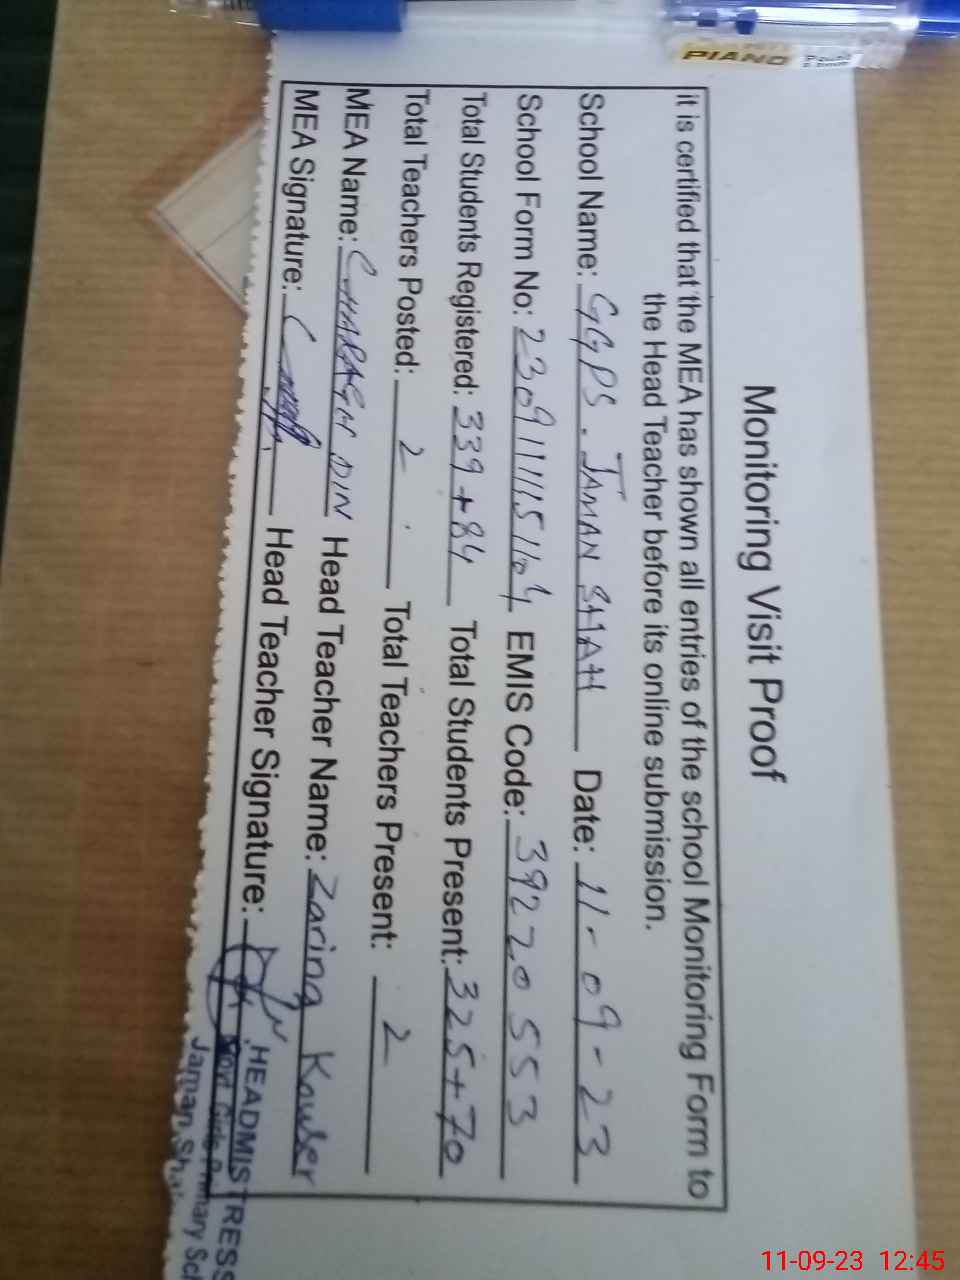 PIANO
Monitoring Visit Proof
it is certified that the MEA has shown all entries of the school Monitoring Form to
the Head Teacher before its online submission.
School Name: GGPS. JAMAN SHAH Date: 11-09-23
School Form No: EMIS Code: 39220553
Total Students Registered: 339+84 Total Students Present: 325+70
Total Teachers Posted: 2 Total Teachers Present: 2
MEA Name: CHARAGH DIN Head Teacher Name: Zarina Kawser
MEA Signature: Head Teacher Signature:
HEADMISTRESS
Govt Girls Primary Sch
Jaman Shah
11-09-23 12:45